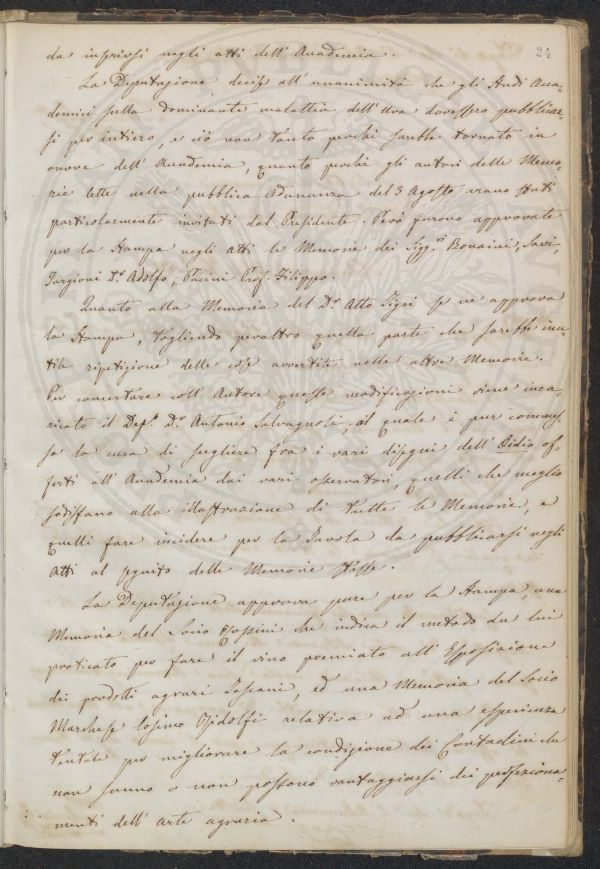 24
da inserirsi negli atti dell'Accademia.
La Deputazione decise all'unanimità che gli Studi Acca-
demici sulla dominante malattia dell'Uva dovessero pubblicar-
si per intiero, e ciò non tanto perchè sarebbe tornato in
onore dell'Accademia, quanto perchè gli autori delle Memo-
rie lette nella pubblica Adunanza del 3 Agosto erano stati
particolarmente invitati dal Presidente. Però furono approvate
per la stampa negli Atti le Memorie dei Sigg.ri Bonaini, Savi,
Targioni D.r Adolfo, Pacini Prof. Filippo.
Quanto alla Memoria del D.r Atto Tigri se ne approva
la stampa, togliendo peraltro quella parte che sarebbe inu-
tile ripetizione delle cose avvertite nelle altre Memorie.
Per concertare coll'Autore queste modificazioni viene inca-
ricato il Dep.o D.r Antonio Salvagnoli, al quale è pur commes-
sa la cura di scegliere fra i vari disegni dell'Oidio of-
ferti all'Accademia dai vari osservatori, quelli che meglio
sodisfano alla illustrazione di tutte le Memorie, e
quelli fare incidere per la Tavola da pubblicarsi negli
Atti al seguito delle Memorie stesse.
La Deputazione approva pure per la stampa una
Memoria del Socio Rossini che indica il metodo da lui
praticato per fare il vino premiato all'Esposizione
dei prodotti agrari Toscani, ed una Memoria del Socio
Marchese Cosimo Ridolfi relativa ad una esperienza
tentata per migliorare la condizione dei Contadini che
non sanno o non possono vantaggiarsi dei perfeziona-
menti dell'arte agraria.